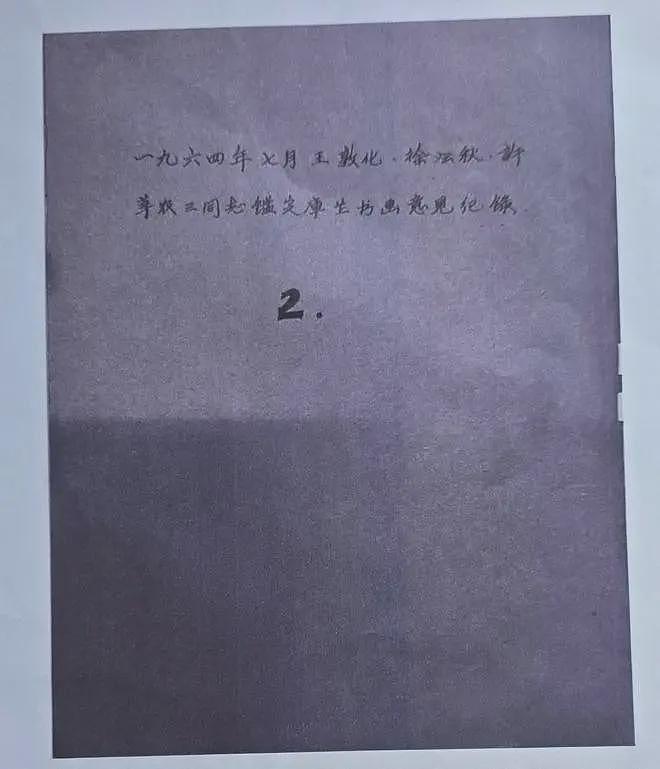 一九六四年七月王敦化、徐沄秋、許
莘农三同志鑑定庫生书画意見纪錄
2.